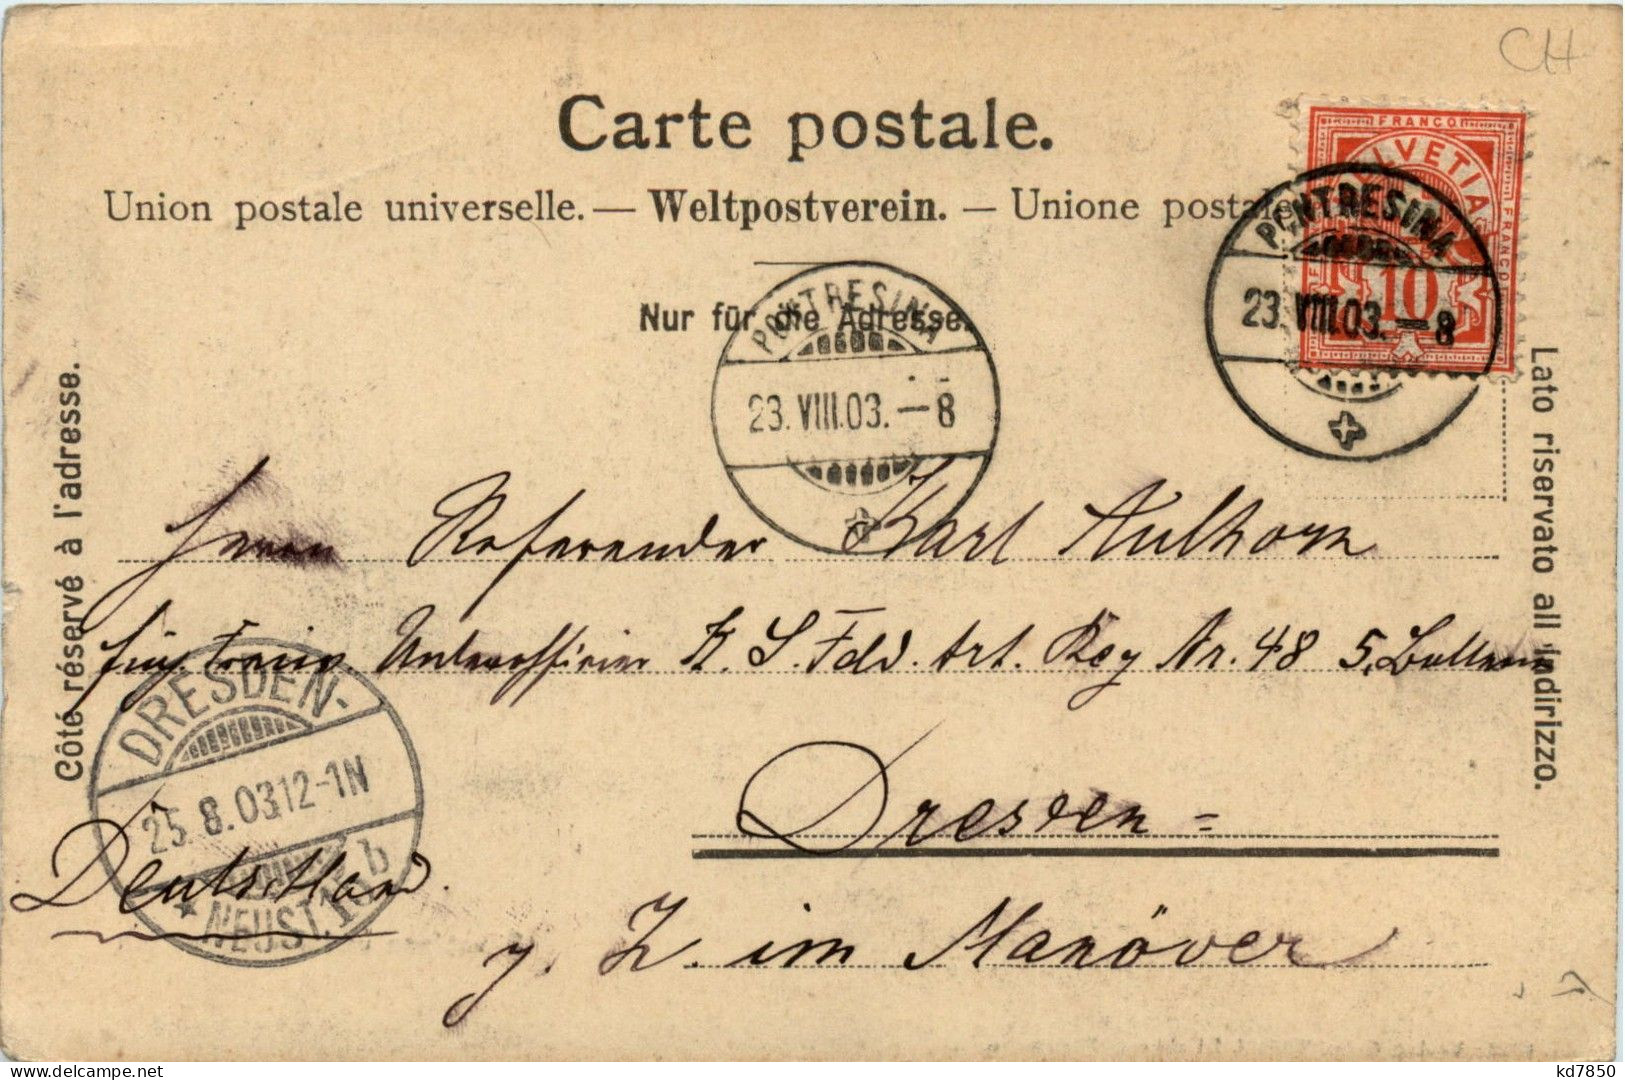 CH
Carte postale.
Union postale universelle. — Weltpostverein. — Unione postale
Nur für die Adresse.
Côté réservé à l'adresse.
Lato riservato all' indirizzo.
FRANCO
HELVETIA
FRANCO
10
PONTRESINA
23.VIII.03.–8
PONTRESINA
23.VIII.03.–8
Herrn Referendar Karl Aulhorn
Unteroffizier K. S. Feld. Art. Reg Nr. 48 5.
Dresden =
Deutschland.
z. Z. im Manöver
DRESDEN-
25.8.03 12-1N
NEUST. 15 b
kd7850